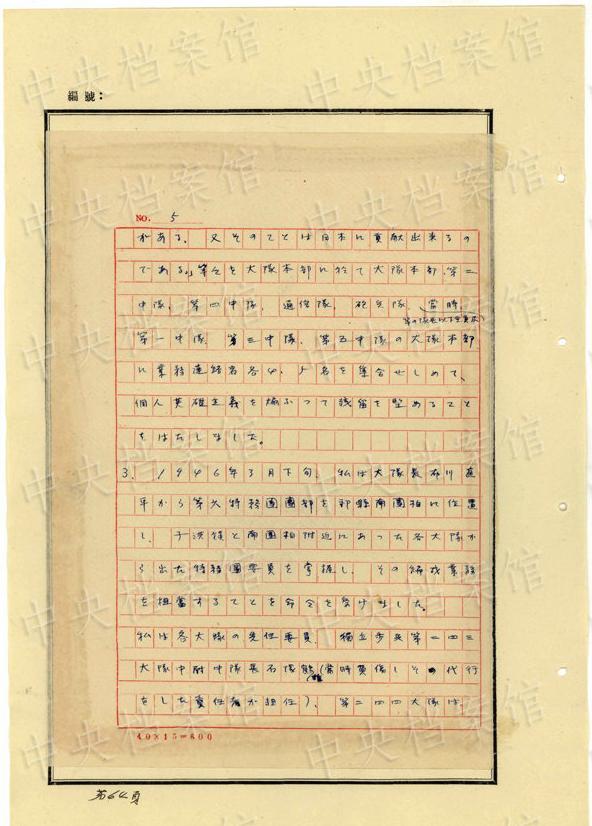 編號：
NO. 5
がある。又そのことは日本に貢献出来るの
である」等と大隊本部に於て大隊本部、第二
中隊、第四中隊、通信隊、砲兵隊、当時
第一中隊、第三中隊、第五中隊の大隊本部
に業務連絡者各4、5名を集合せしめて、
個人英雄主義を煽ふつて残留を堅めること
をはたしました。
3. 1946年3月下旬、私は大隊長布川直
平から第六特務団団部を祁縣南團柏に位置
し、子洪鎮と南團柏附近にあった各大隊か
ら出た特務團要員を掌握し、その編成業務
を担当することを命令を受けました。
私は各大隊の先任要員、獨立歩兵第二四三
大隊中尉中隊長石塚 (当時負傷しその代行
をした責任者が担任)、第二四四大隊は
40×15=600
第64頁
中央档案馆